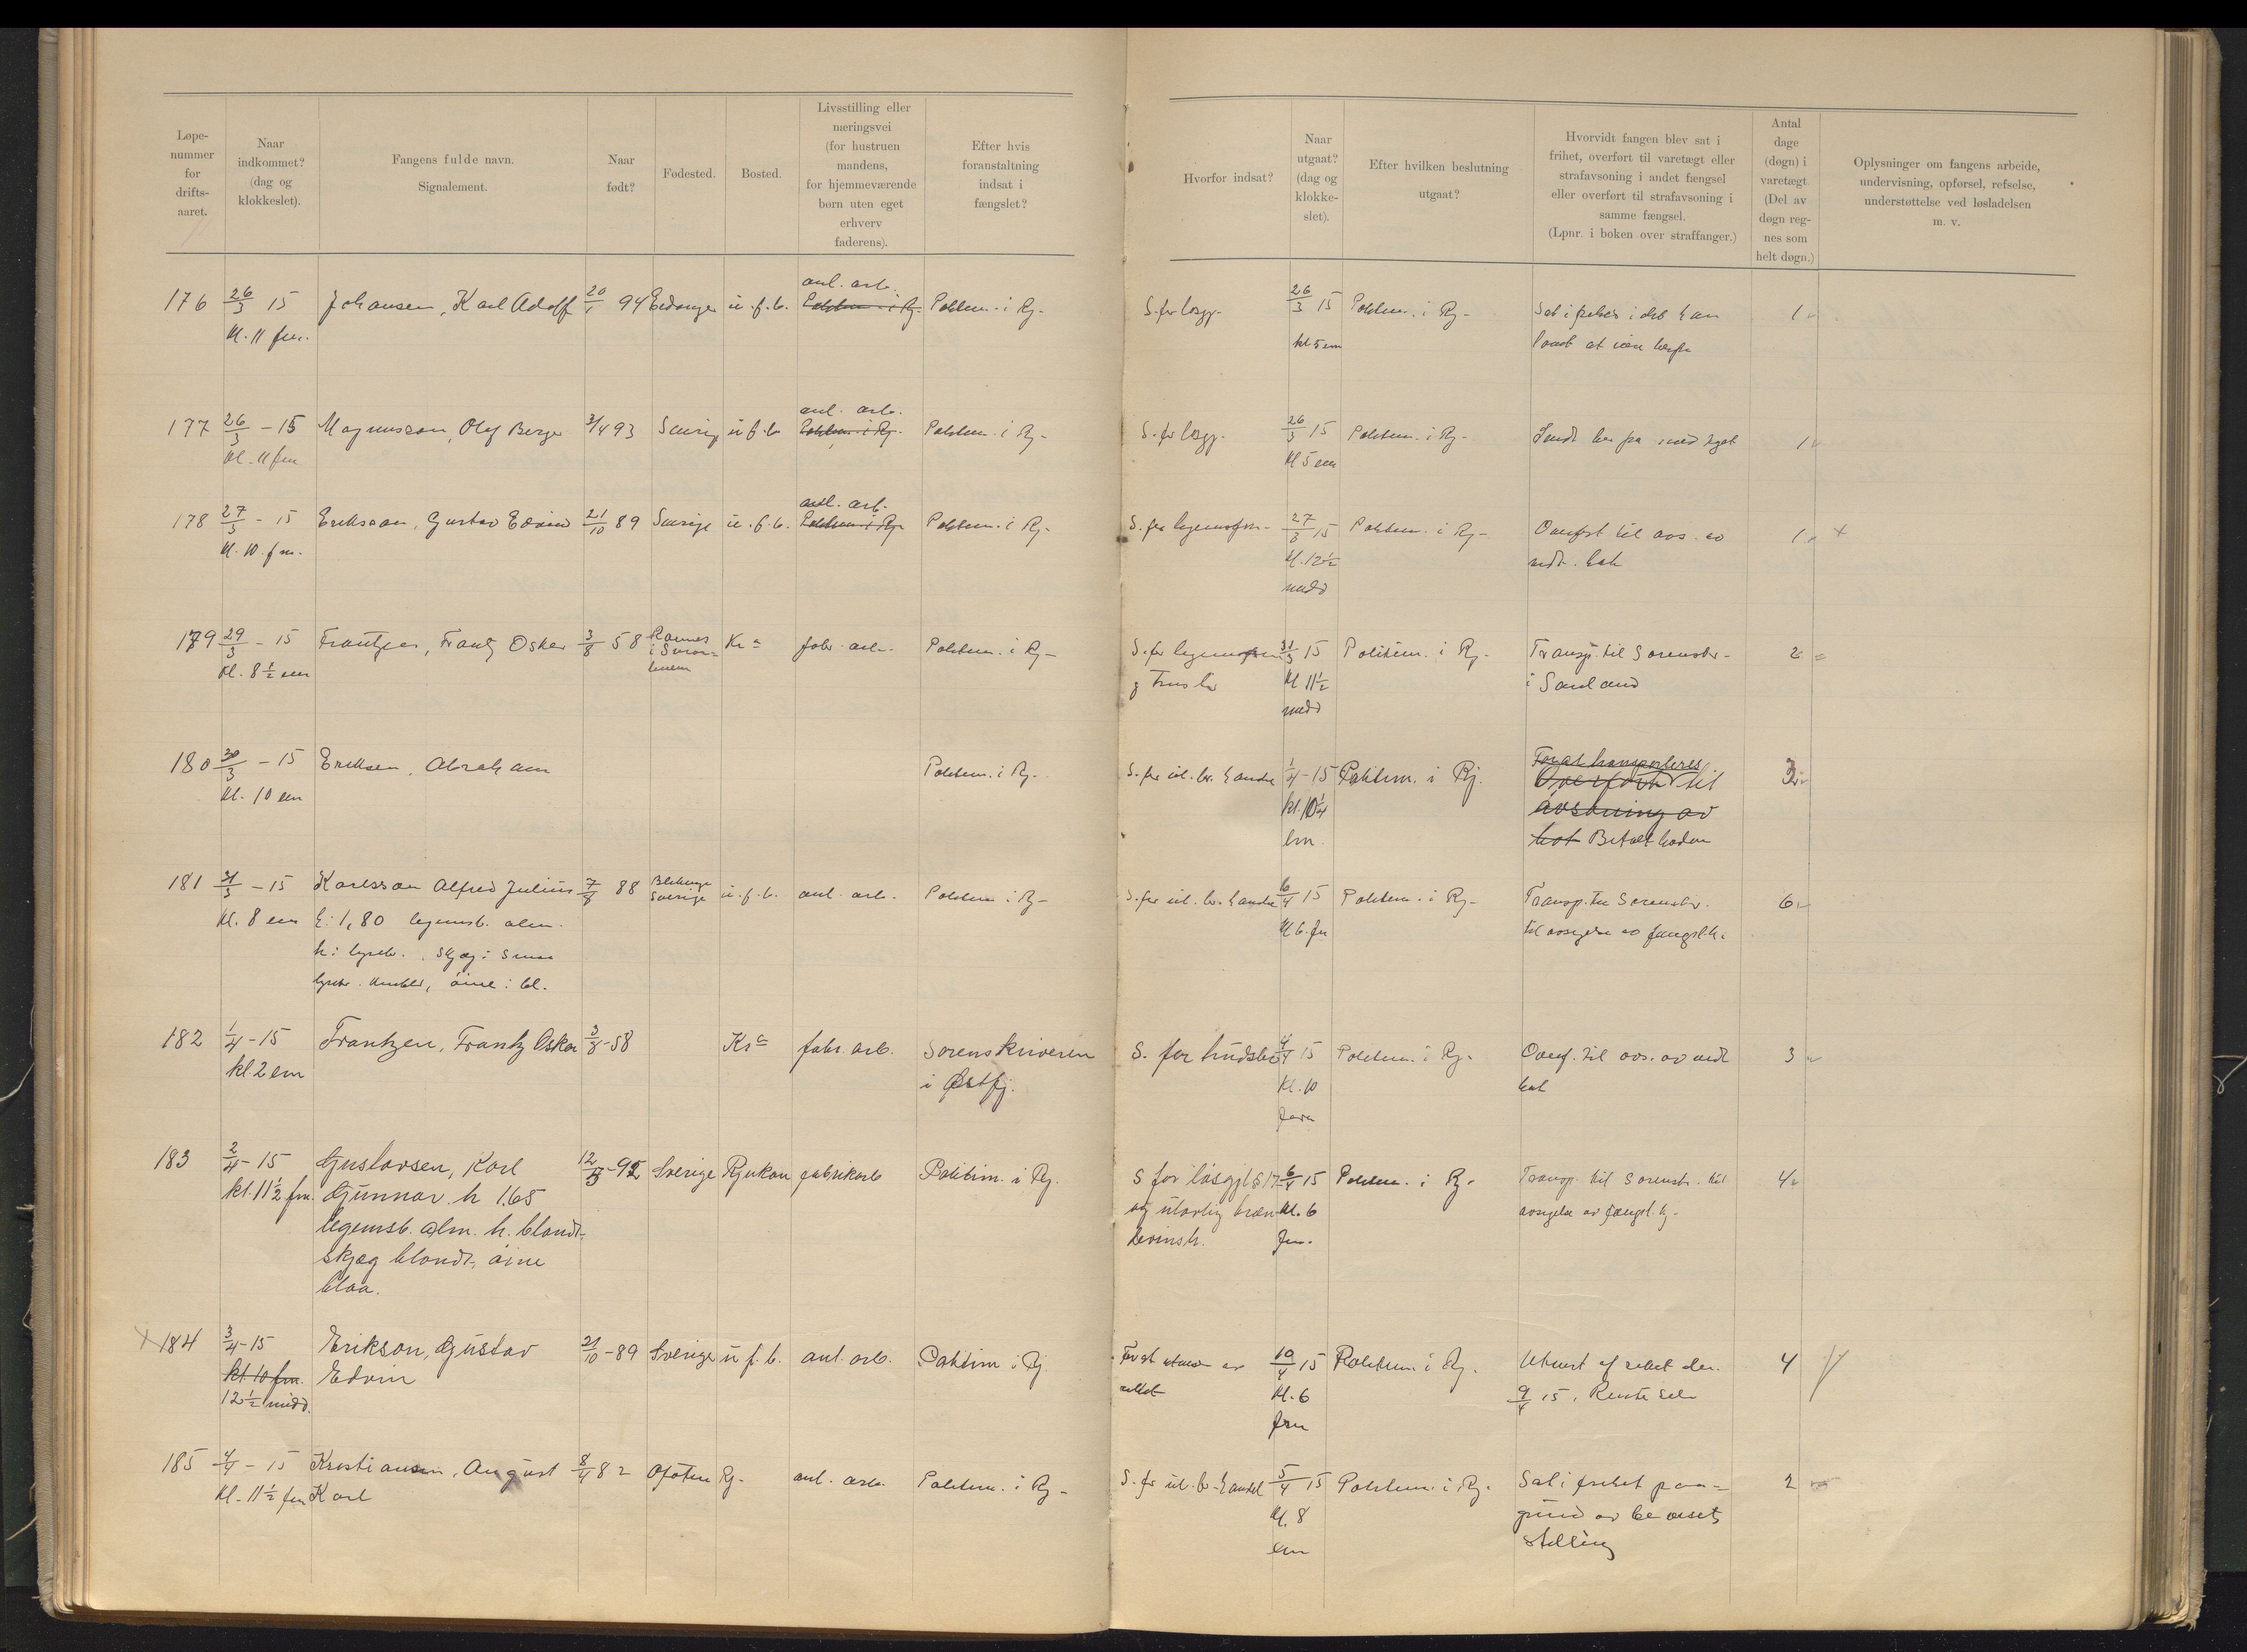 Løpe-
nummer
for
drifts-
aaret.
Naar
indkommet?
(dag og
klokkeslet).
Fangens fulde navn.
Signalement.
Naar
født?
Fødested.
Bosted.
Livsstilling eller
næringsvei
(for hustruen
mandens,
for hjemmeværende
børn uten eget
erhverv
faderens).
Efter hvis
foranstaltning
indsat i
fængslet?
Hvorfor indsat?
Naar
utgaat?
(dag og
klokke-
slet).
Efter hvilken beslutning
utgaat?
Hvorvidt fangen blev sat i
frihet, overført til varetægt eller
strafavsoning i andet fængsel
eller overført til strafavsoning i
samme fængsel.
(Lpnr. i boken over straffanger.)
Antal
dage
(døgn) i
varetægt.
(Del av
døgn reg-
nes som
helt døgn.)
Oplysninger om fangens arbeide,
undervisning, opførsel, refselse,
understøttelse ved løsladelsen
m. v.
anl. arb.
176 26/3 15 Johansen, Karl Adolf 20/1 94 Eidanger u. f. b. Politim. i Rj. Politim. i Rj. S. for løsgj. 26/3 15 Politim. i Rj. Sat i frihet idet han 1
kl. 11 fm. kl 5 em
anl. arb.
177 26/3 - 15 Magnusson, Olof Berger 3/4 93 Sverig u f. b. Politim. i Rj. Politim. i Rj. S. for løsgj. 26/3 15 Politim. i Rj. 1
kl. 11 fm. kl 5 em
anl. arb.
178 27/3 - 15 Eriksson, Gustav Edvin 21/10 89 Sverige u. f. b. Politim. i Rj. Politim. i Rj. 27/3 15 Politim. i Rj. Overført til avs. av 1
kl. 10. fm. kl. 12 1/2 vedt. bot
midd
179 29/3 - 15 Frantzen, Frantz Oskar 3/8 58 Kra fabr. arb. Politim. i Rj. 31/3 15 Politim. i Rj. Transp. til Sorenskr. 2
kl. 8 1/2 em kl 11 1/2 i Sauland
midd
180 30/3 - 15 Eriksen, Abraham Politim. i Rj. S. for ul. br. handel 1/4 - 15 Politim. i Rj. For at transporteres 3
Overført til
kl. 10 em kl. 10 1/4 avsoning av
em. bot Betalt boden
181 31/3 - 15 Karlsson Alfred Julius 7/8 88 Blekinge Sverige u. f. b. anl. arb. Politim i Rj. S. for ul. br. handel 6/4 15 Politim. i Rj. Transp. til Sorenskr. 6
kl. 8 em h: 1,80 legemsb. alm. kl 6. fm til avsigelse av fængsl. kj.
øine: bl.
182 1/4 - 15 Frantzen, Frantz Oskar 3/8 - 58 Kra fabr. arb. Sorenskriveren S. for trudsler 4/4 15 Politim. i Rj. Overf. til avs. av vedt 3
kl. 2 em i Østfj. kl. 10 bot
form
183 2/4 - 15 Gustavsen, Karl 12/3 - 92 Sverige Rjukan fabrikarb Politim. i Rj. S for løsgjl § 17 6/4 15 Politim. i Rj. Transp. til Sorenskr. til 4
kl. 11 1/2 fm. Gunnar. h 1.65 og ulovlig bræn- kl. 6 avsigelse av fængsl. kj.
legemsb. alm. h. blondt, fm.
skjæg blondt, øine
blaa.
184 3/4 - 15 Erikson, Gustav 21/10 - 89 Sverige u f. b. anl. arb. Politim i Rj. 10/4 15 Politim. i Rj. 4
kl. 10 fm. Edvin kl. 6 9/4 15.
12 1/2 midd. fm
185 4/4 - 15 Kristiansen, August 8/4 82 Ofoten Rj. anl. arb. Politim. i Rj. S. for ul. br. handel 5/4 15 Politim. i Rj. Sat i frihet paa 2
kl. 11 1/2 fm Karl kl. 8 grund av
em stilling